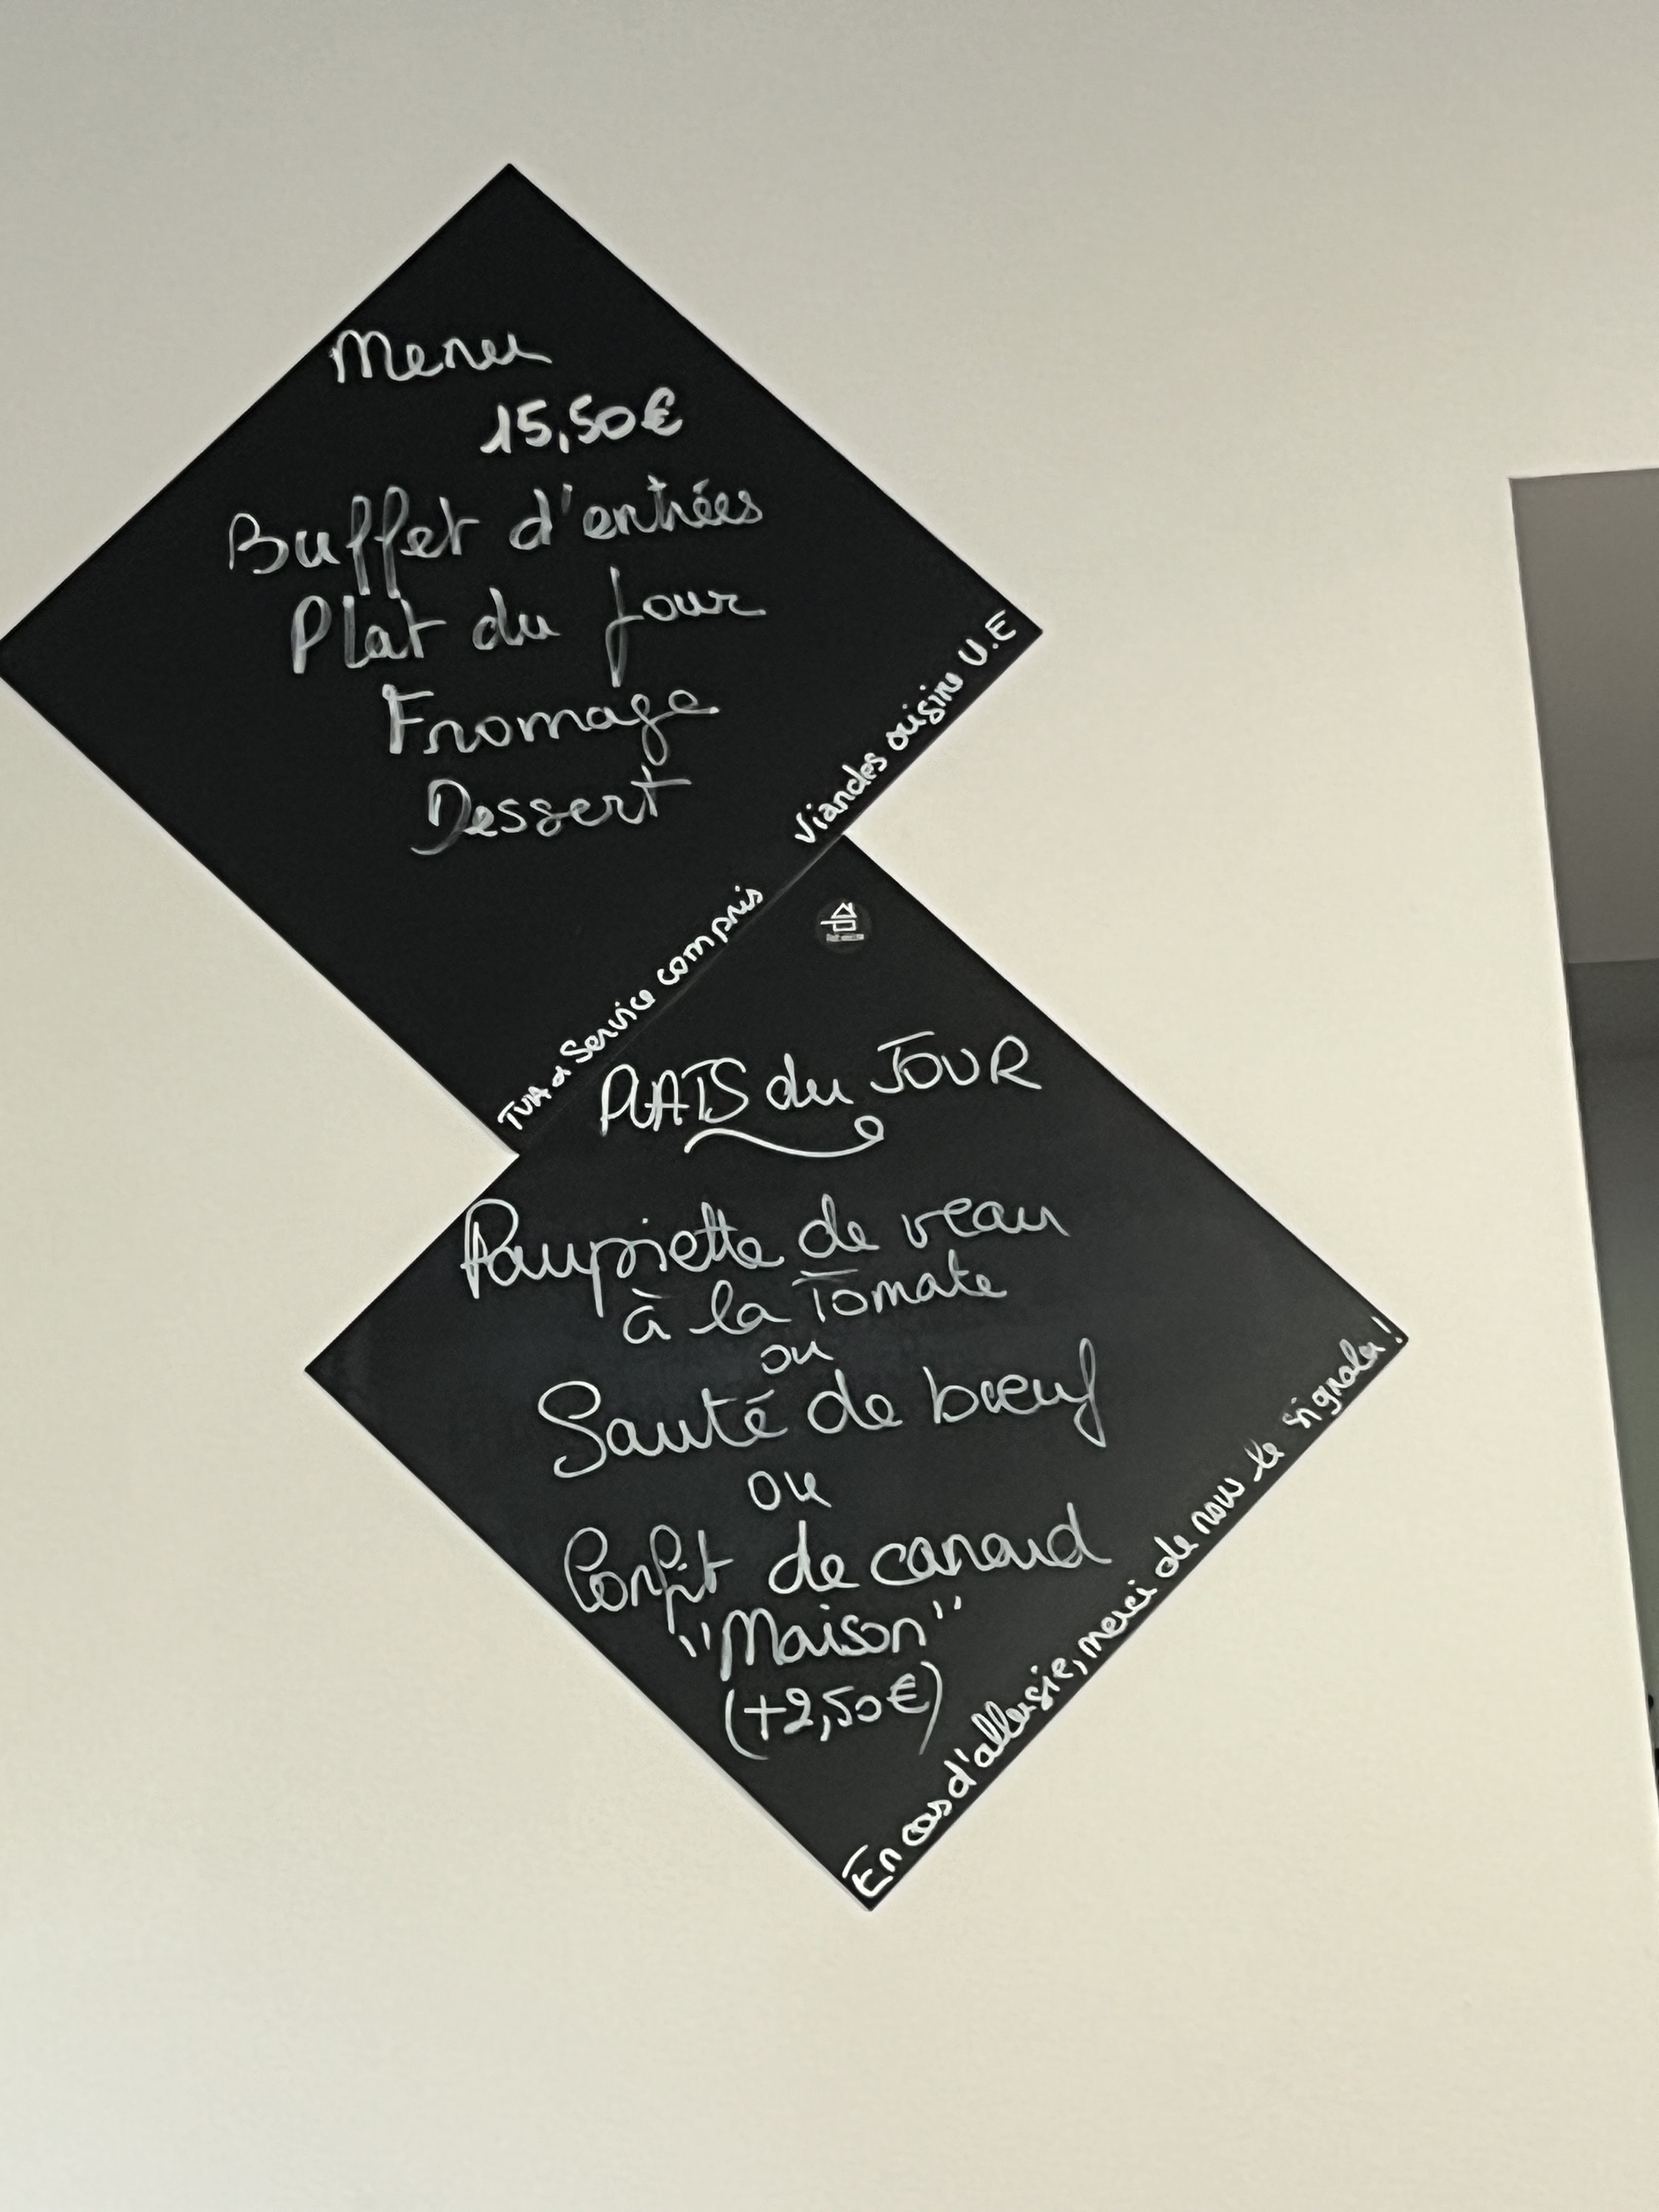 Menu
15,50€
Buffet d'entrées
Plat du jour
Fromage
Dessert
TVA et Service compris
Viandes origine U.E
PLATS du JOUR
Paupiette de veau
à la Tomate
ou
Sauté de bœuf
ou
Confit de canard
"Maison"
(+2,50€)
En cas d'allergie, merci de nous le signaler !